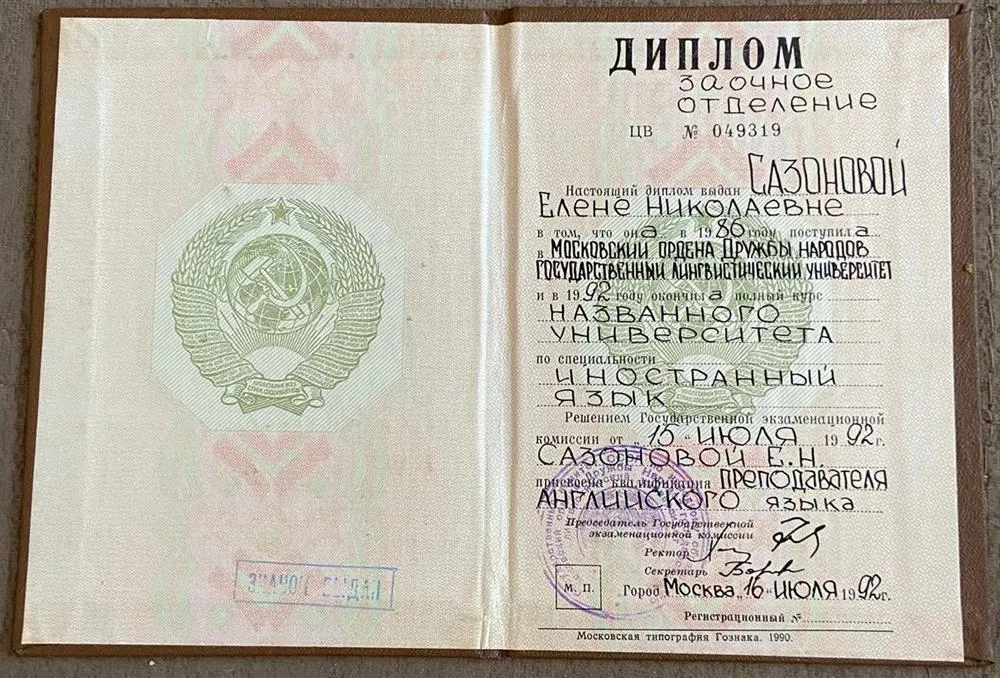 ЗНАЧОК ВЫДАН
ДИПЛОМ
заочное
отделение
ЦВ № 049319
Настоящий диплом выдан Сазоновой
Елене Николаевне
в том, что она в 1986 году поступила
в Московский ордена Дружбы народов
государственный лингвистический университет
и в 1992 году окончила полный курс
названного
университета
по специальности
иностранный
язык
Решением Государственной экзаменационной
комиссии от „15“ июля 1992 г.
Сазоновой Е.Н.
присвоена квалификация преподавателя
английского языка
Председатель Государственной
экзаменационной комиссии
Ректор
Секретарь
М. П.
Город Москва „16“ июля 1992 г.
Регистрационный №
Московская типография Гознака. 1990.